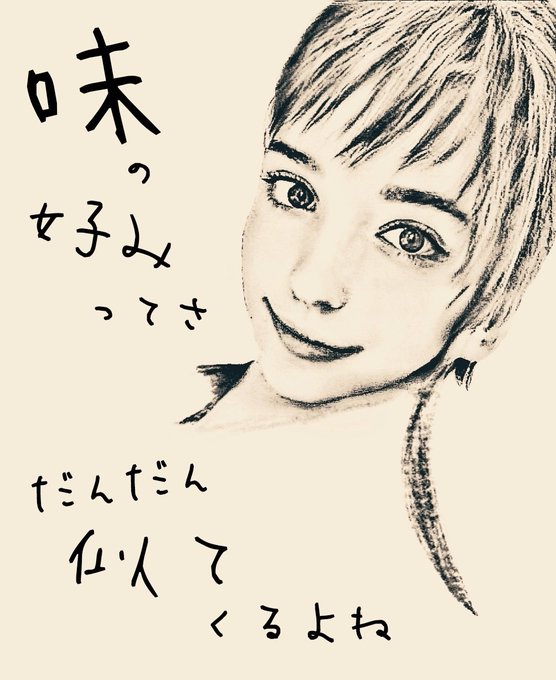 味
の
好み
ってさ
だんだん
似て
くるよね